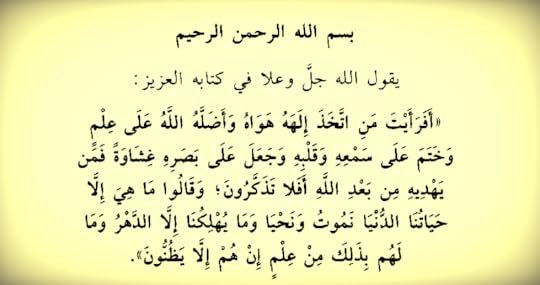 بسم الله الرحمن الرحيم
يقول الله جلَّ وعلا في كتابه العزيز:
«أَفَرَأَيْتَ مَنِ اتَّخَذَ إِلَهَهُ هَوَاهُ وَأَضَلَّهُ اللَّهُ عَلَى عِلْمٍ
وَخَتَمَ عَلَى سَمْعِهِ وَقَلْبِهِ وَجَعَلَ عَلَى بَصَرِهِ غِشَاوَةً فَمَن
يَهْدِيهِ مِن بَعْدِ اللَّهِ أَفَلا تَذَكَّرُونَ؛ وَقَالُوا مَا هِيَ إِلَّا
حَيَاتُنَا الدُّنْيَا نَمُوتُ وَنَحْيَا وَمَا يُهْلِكُنَا إِلَّا الدَّهْرُ وَمَا
لَهُم بِذَلِكَ مِنْ عِلْمٍ إِنْ هُمْ إِلَّا يَظُنُّونَ».